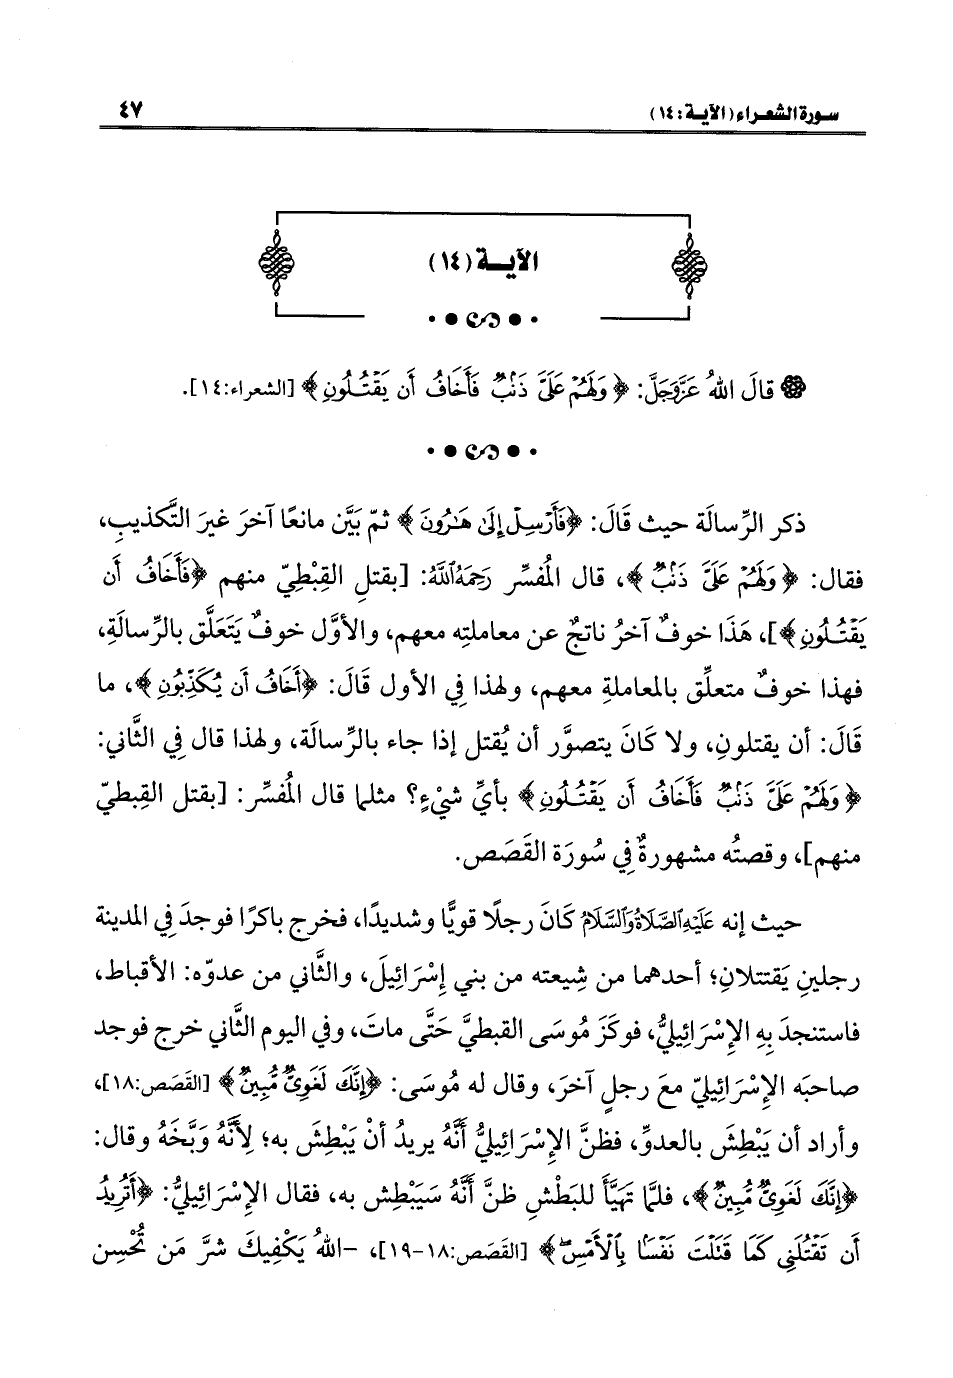 سورة الشعراء (الآية: ١٤)
٤٧
الآية (١٤)
قالَ اللهُ عَزَّوَجَلَّ: ﴿وَلَهُمْ عَلَىَّ ذَنۢبٌ فَأَخَافُ أَن يَقْتُلُونِ﴾ [الشعراء:١٤].
ذكر الرِّسالَة حيث قَالَ: ﴿فَأَرْسِلْ إِلَىٰ هَـٰرُونَ﴾ ثمّ بَيَّن مانعًا آخرَ غيرَ التَّكذيبِ،
فقال: ﴿وَلَهُمْ عَلَىَّ ذَنۢبٌ﴾، قال المُفسِّر رَحِمَهُ اللَّهُ: [بقتلِ القِبْطِيّ منهم ﴿فَأَخَافُ أَن
يَقْتُلُونِ﴾]، هَذَا خوفٌ آخرُ ناتجٌ عن معاملتِه معهم، والأوَّل خوفٌ يَتَعَلَّق بالرِّسالَةِ،
فهذا خوفٌ متعلِّق بالمعاملةِ معهم، ولهذا فِي الأول قَالَ: ﴿أَخَافُ أَن يُكَذِّبُونِ﴾، ما
قَالَ: أن يقتلونِ، ولا كَانَ يتصوَّر أن يُقتل إذا جاء بالرِّسالَة، ولهذا قال فِي الثَّاني:
﴿وَلَهُمْ عَلَىَّ ذَنۢبٌ فَأَخَافُ أَن يَقْتُلُونِ﴾ بأيِّ شيْءٍ؟ مثلما قال المُفسِّر: [بقتل القِبطيّ
منهم]، وقصتُه مشهورةٌ فِي سُورَة القَصَص.
حيث إنه عَلَيْهِ الصَّلَاةُ وَالسَّلَامُ كَانَ رجلًا قويًّا وشديدًا، فخرج باكرًا فوجدَ فِي المدينة
رجلينِ يَقتتلانِ؛ أحدهما من شِيعته من بني إِسْرَائِيلَ، والثَّاني من عدوّه: الأقباط،
فاستنجدَ بِهِ الإِسْرَائِيليُّ، فوكَزَ مُوسَى القبطيَّ حَتَّى ماتَ، وفي اليوم الثَّاني خرج فوجد
صاحبَه الإِسْرَائِيليّ معَ رجلٍ آخرَ، وقال له مُوسَى: ﴿إِنَّكَ لَغَوِىٌّ مُّبِينٌ﴾ [القَصَص:١٨]،
وأراد أن يَبْطِشَ بالعدوِّ، فظنَّ الإِسْرَائِيليُّ أَنَّهُ يريدُ أنْ يَبْطِشَ به؛ لِأَنَّهُ وَبَّخَهُ وقال:
﴿إِنَّكَ لَغَوِىٌّ مُّبِينٌ﴾، فلمَّا تَهَيَّأَ للبَطْشِ ظنَّ أَنَّهُ سَيَبْطِش به، فقال الإِسْرَائِيليُّ: ﴿أَتُرِيدُ
أَن تَقْتُلَنِى كَمَا قَتَلْتَ نَفْسًۢا بِٱلْأَمْسِ﴾ [القَصَص:١٨-١٩]، -اللهُ يَكْفِيكَ شرَّ مَن تُحْسِن